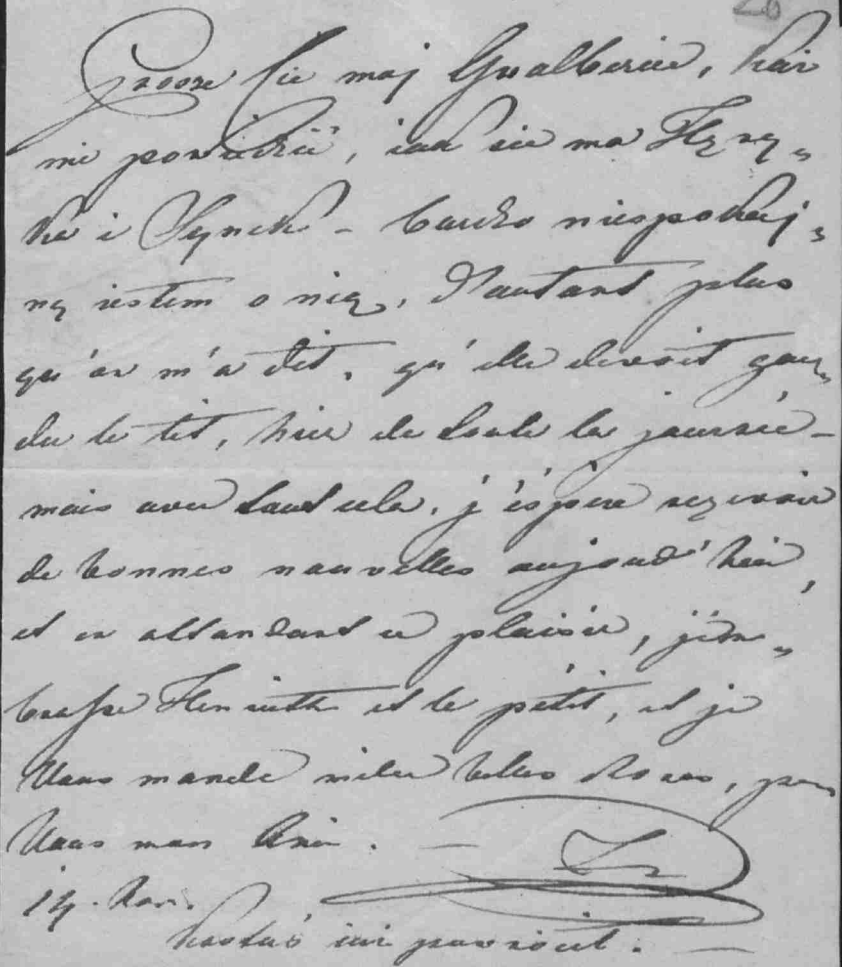 20
Proszę Cie moj Gualbercie, każ
mi powiedzić, iak sie ma Henry-
ka i Synek - bardzo niespokoj-
ny iestem o nię, d'autant plus
qu'on m'a dit, qu'elle devoit gar-
der le lit, hier de toute la journée -
mais avec tout cela, j'éspere reçevoir
de bonnes nouvelles aujourd'hui,
et en attandant ce plaisir, j'em-
brasse Henriette et le pétit, et je
Vous mande milles belles choses, pour
Vous mon Ami.
14.
iuż powrócił.